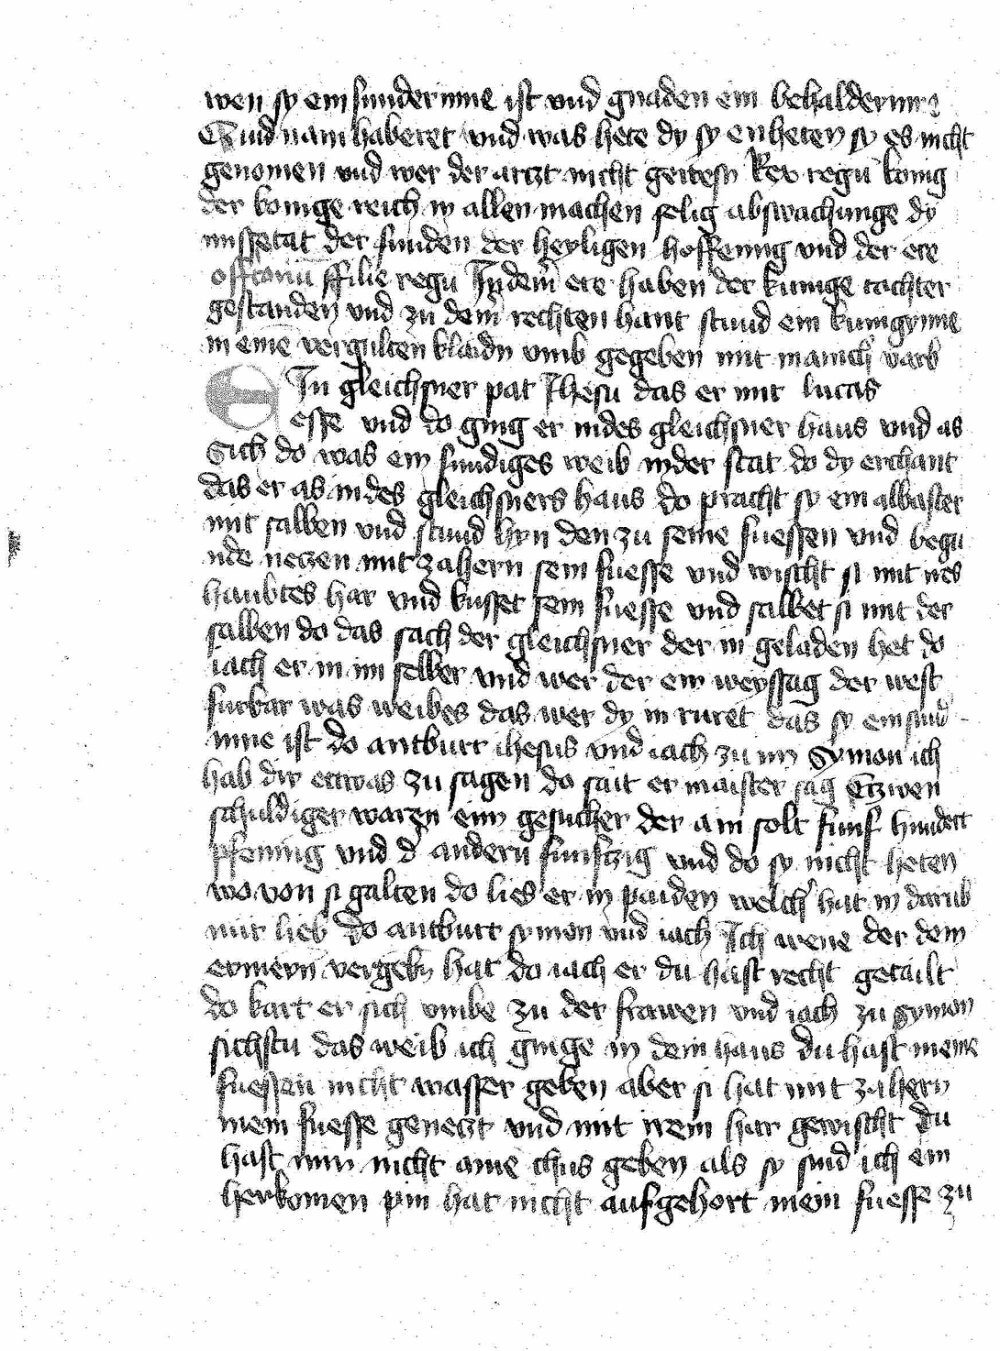 wen sy ein sunderinne ist und gnaden ein behalderinne
Und nam haberet und was hete dy sy enheten sy es nicht
genomen und wer der arczt nicht gewesn Rex regu konig
der konige reich in allen machen selig abswachunge dy
missetat der sunden der heyligen hoffenung und der ere
offtoriu ffilie regu Indem ere haben der kunige tachter
gestanden und zu dem rechten hant stund ein kunigynne
in eine vergulten klaidn umb gegeben mit manich varb
Ein gleichsner pat Jhesu das er mit lucas
esse und do ging er indes gleichsner haus und as
Sich do was ein sundiges weib inder stat do dy erchant
das er as indes gleichsners haus do pracht sy ein albaster
mit salben und stund hyn den zu seine fuessen und begu
nde neczen mit zahern sein fuesse und wischt si mit ires
haubtes har und kusset sein fuesse und salbet si mit der
salben do das sach der gleichsner der in geladen het do
iach er in im selber und wer der ein weyssag der west
furbar was weibes das wer dy in ruret das sy ein sund
inne ist do antburt ihesus und iach zu im Symon ich
hab dir ettwas zu sagen do sait er maister sag Czwen
schuldiger waren eim gesucher der ain solt funf hundert
pfening und d andern funfczig und do sy nicht heten
wo von si galten do lies er in paiden welch hat in darub
mir lieb do antburt symon und iach Ich wene der dem
er meyn vergebn hat do iach er du hast recht getailt
do kart er sich umbe zu der frawen und iach zu Symon
sichstu das weib ich ginge in dein haus du hast meine
fuessen nicht wasser geben aber si hat mit zahern
mein fuesse geneczt und mit irem har gewischt du
hast mir nicht aine chus geben als sy sind ich ein
herkomen pin hat nicht aufgehort mein fuesse zu